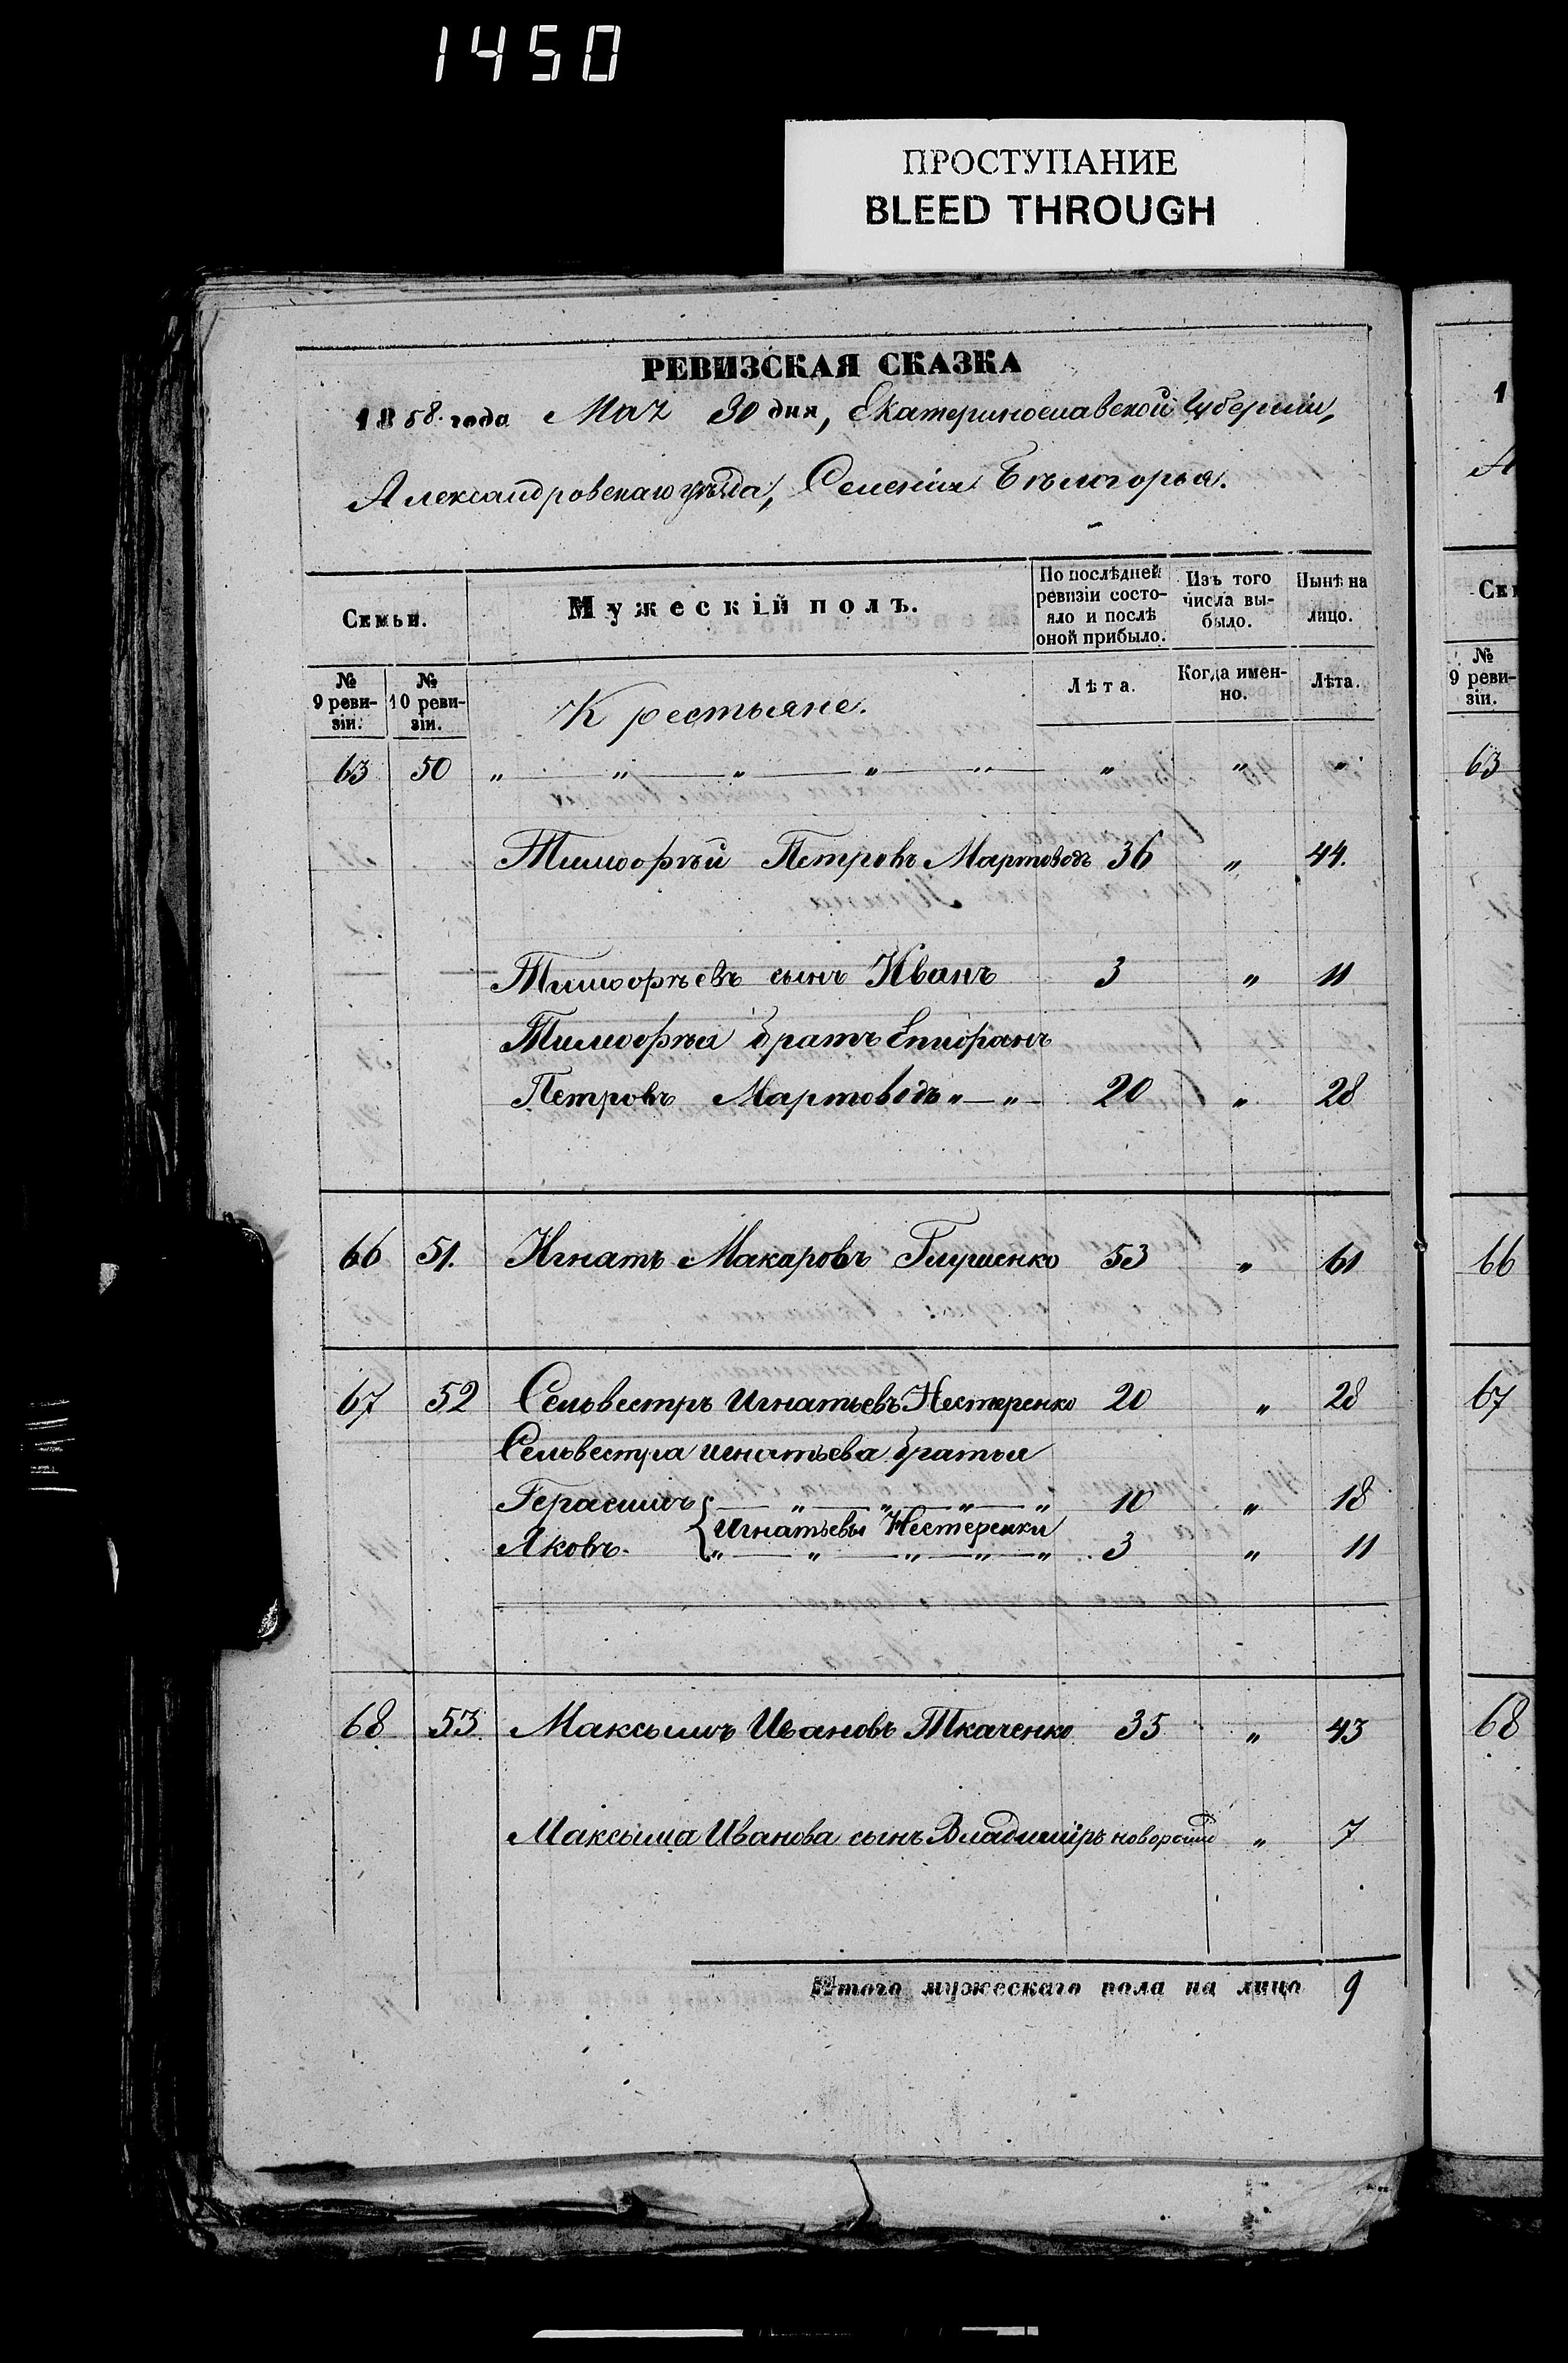 1450
ПРОСТУПАНИЕ
BLEED THROUGH
РЕВИЗСКАЯ СКАЗКА
1858 года Мая 30 дня, Екатеринославской Губерніи,
Александровскаго уѣзда, Селенія Бѣлогорья.
Семьи. Мужескій полъ. По послѣдней ревизіи состояло и послѣ оной прибыло. Изъ того числа выбыло. Нынѣ на лицо.
№ 9 ревизіи. № 10 ревизіи. Крестьяне. Лѣта. Когда именно. Лѣта.
63 50 „ „ „ „ „ „ „ „
Тимофѣй Петровъ Мартоводъ 36 „ 44.
Тимофѣевъ сынъ Иванъ 3 „ 11
Тимофѣя братъ Епифанъ
Петровъ Мартоводъ „ „ 20 „ 28
66 51. Игнатъ Макаровъ Глушенко 53 „ 61
67 52 Сельвестръ Игнатьевъ Нестеренко 20 „ 28
Сельвестра Игнатьева братья
Герасимъ „ „ „ „ 10 „ 18
{ Игнатьевы Нестеренки
Яковъ. „ „ „ „ „ 3 „ 11
68 53. Максымъ Ивановъ Ткаченко 35 „ 43
Максыма Иванова сынъ Владиміръ новорожд „ 7
Итого мужескаго пола на лицо 9
1
А
Сем
№ 9 ревизіи.
63
66
67
68